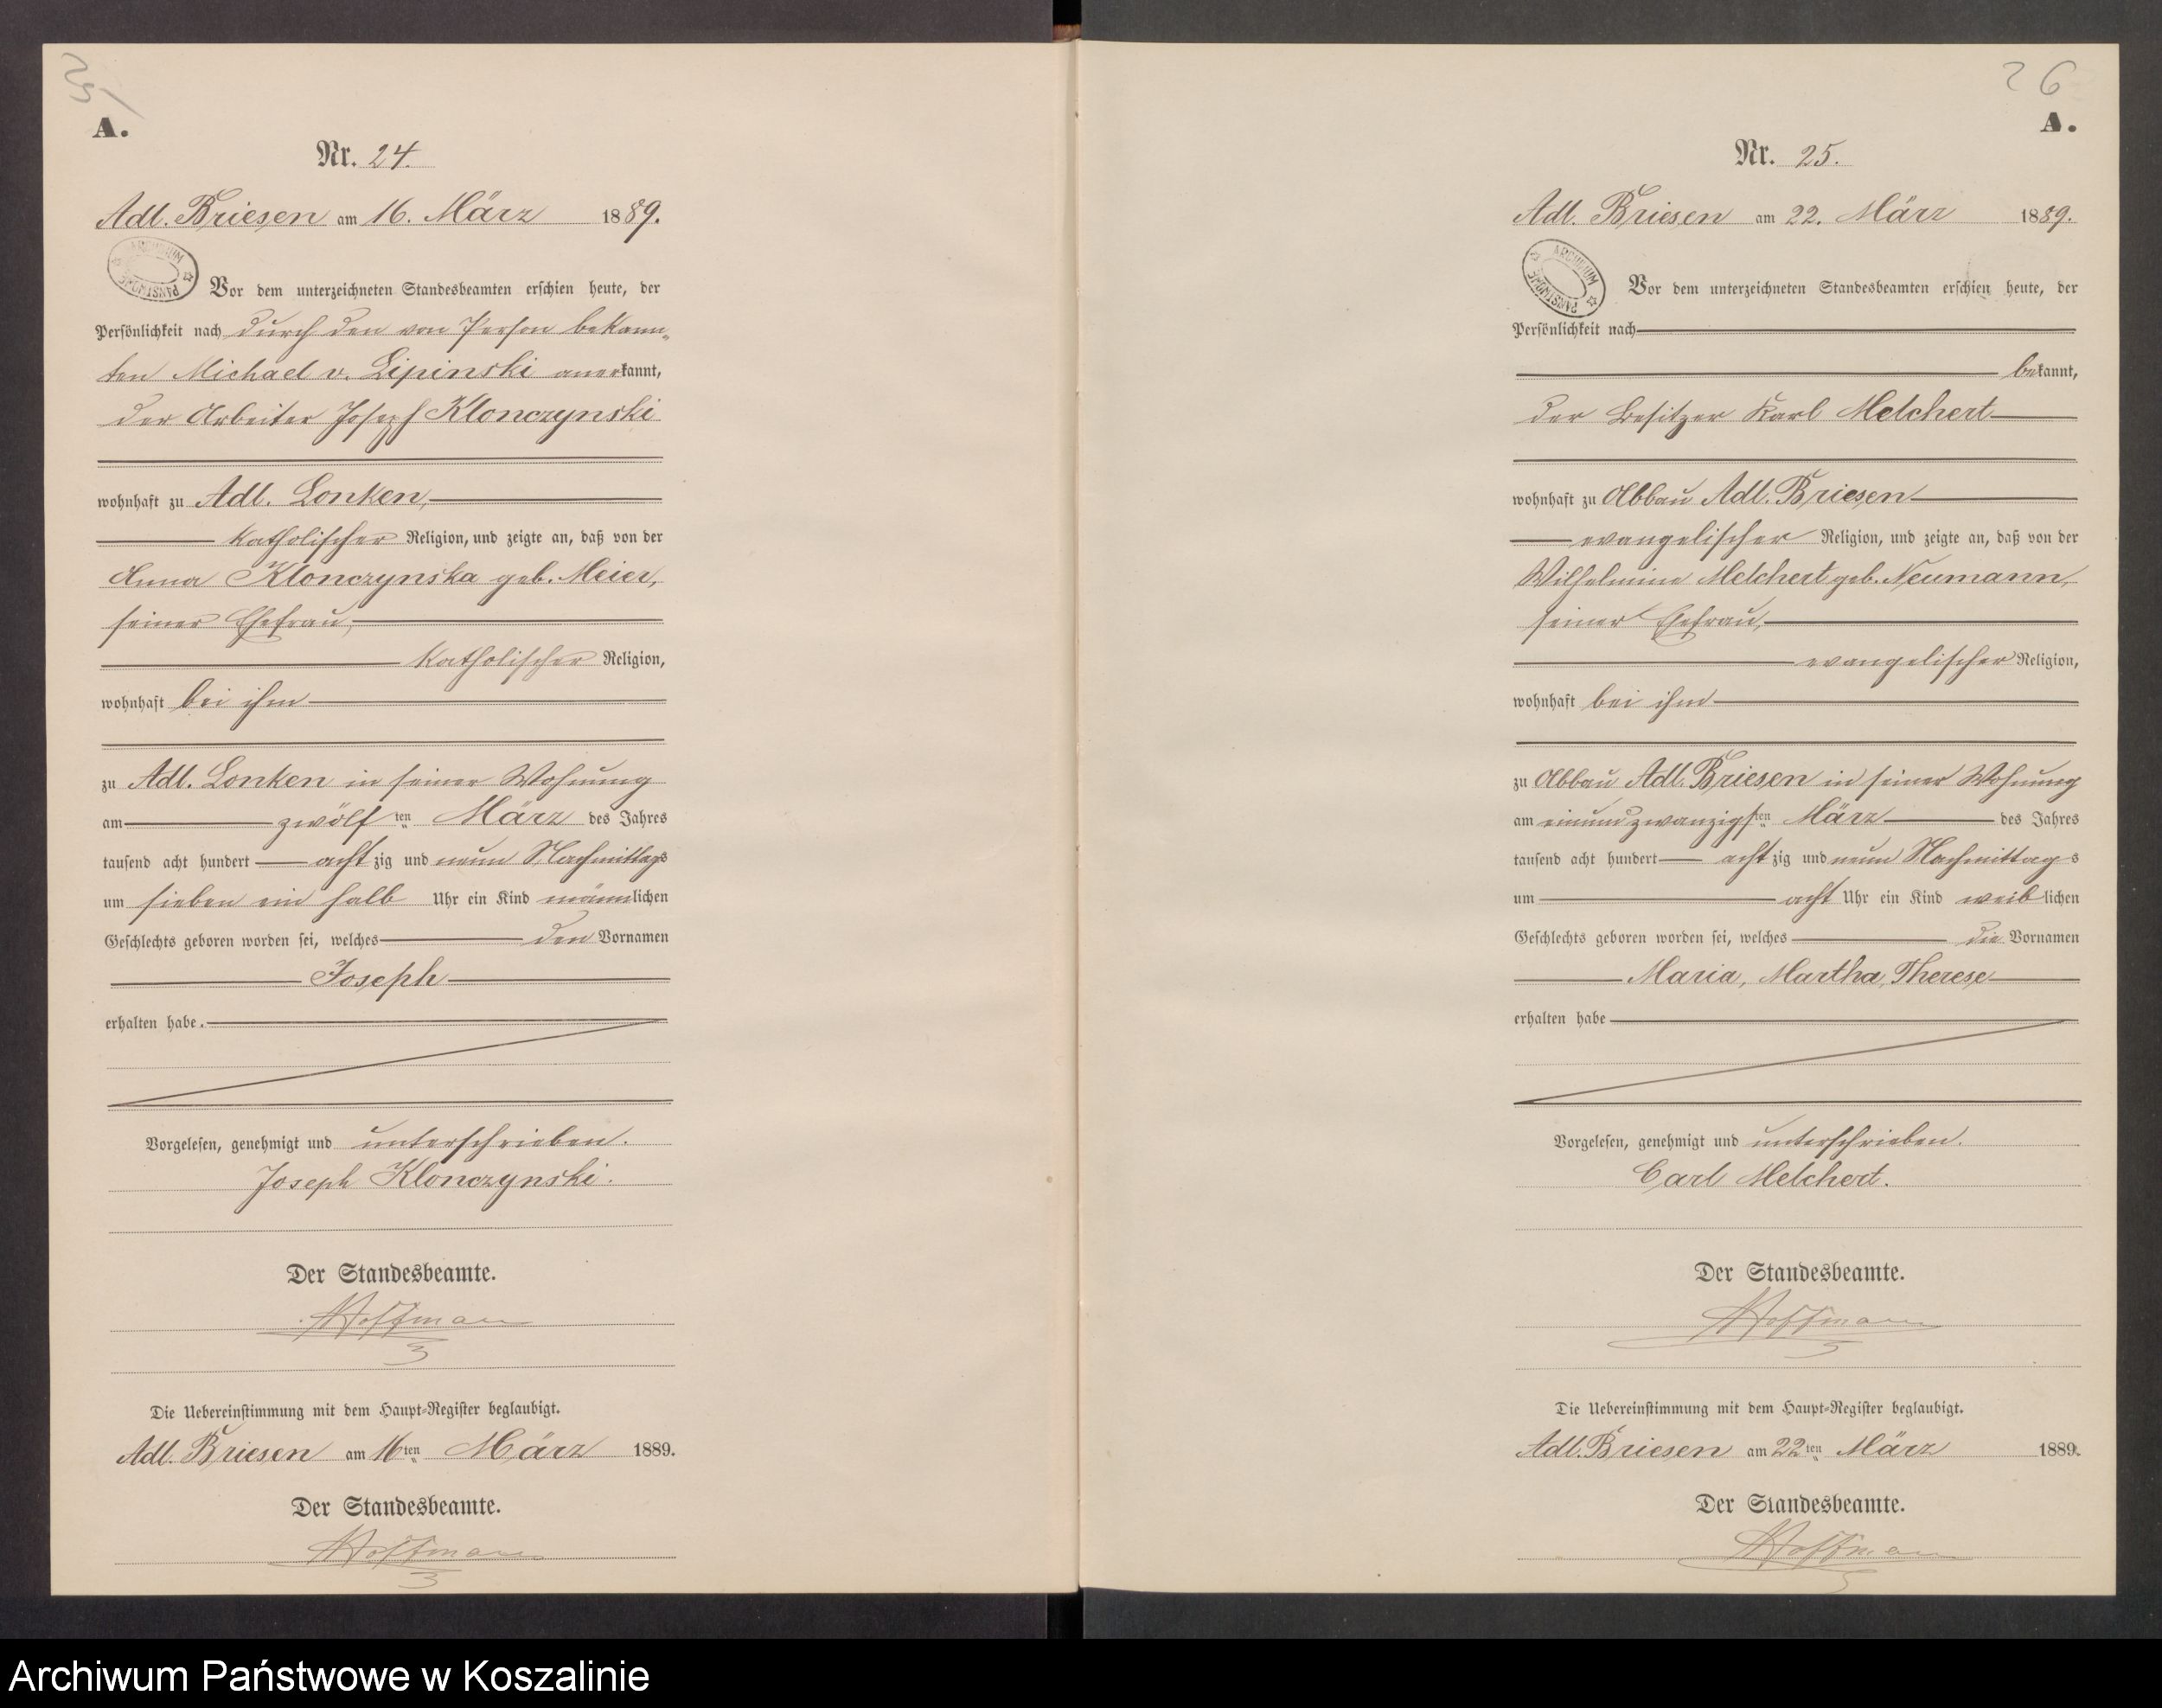 25
A.
Nr. 24.
Adl. Briesen am 16. März 1889.
ARCHIWUM PAŃSTWOWE
Vor dem unterzeichneten Standesbeamten erschien heute, der
Persönlichkeit nach durch den von Person bekann„
ten Michael v. Lipinski anerkannt,
der Arbeiter Joseph Klonczynski
wohnhaft zu Adl. Lonken,
katholischer Religion, und zeigte an, daß von der
Anna Klonczynska geb. Meier,
seiner Ehefrau,
katholischer Religion,
wohnhaft bei ihm
zu Adl. Lonken in seiner Wohnung
am zwölf ten März des Jahres
tausend acht hundert acht zig und neun Nachmittags
um sieben ein halb Uhr ein Kind männlichen
Geschlechts geboren worden sei, welches den Vornamen
Joseph
erhalten habe.
Vorgelesen, genehmigt und unterschrieben.
Joseph Klonczynski.
Der Standesbeamte.
Hoffmann
Die Uebereinstimmung mit dem Haupt-Register beglaubigt.
Adl. Briesen am 16ten März 1889.
Der Standesbeamte.
Hoffmann
26
A.
Nr. 25.
Adl. Briesen am 22. März 1889.
ARCHIWUM PAŃSTWOWE
Vor dem unterzeichneten Standesbeamten erschien heute, der
Persönlichkeit nach
bekannt,
der Besitzer Karl Melchert
wohnhaft zu Abbau Adl. Briesen
evangelischer Religion, und zeigte an, daß von der
Wilhelmine Melchert geb. Neumann,
seiner Ehefrau,
evangelischer Religion,
wohnhaft bei ihm
zu Abbau Adl. Briesen in seiner Wohnung
am einundzwanzigsten März des Jahres
tausend acht hundert acht zig und neun Nachmittags
um acht Uhr ein Kind weiblichen
Geschlechts geboren worden sei, welches die Vornamen
Maria, Martha, Therese
erhalten habe
Vorgelesen, genehmigt und unterschrieben.
Carl Melchert.
Der Standesbeamte.
Hoffmann
Die Uebereinstimmung mit dem Haupt-Register beglaubigt.
Adl. Briesen am 22ten März 1889.
Der Standesbeamte.
Hoffmann
Archiwum Państwowe w Koszalinie